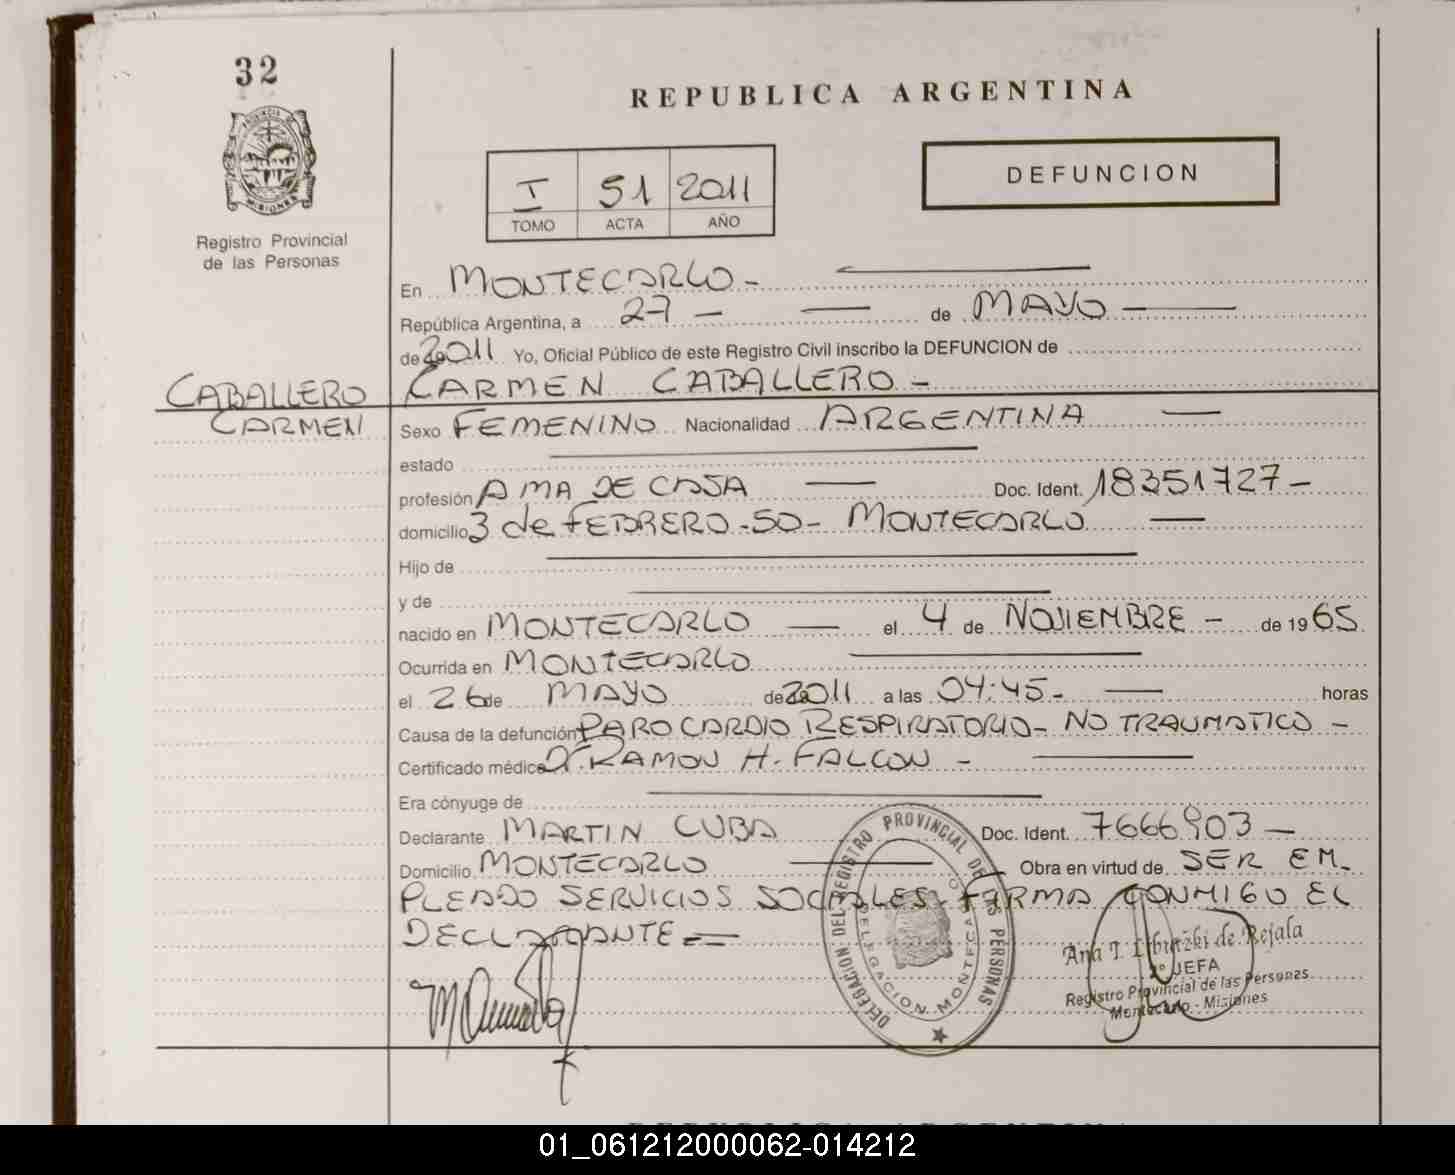 32
REPUBLICA ARGENTINA
PROVINCIA DE
MISIONES
Registro Provincial
de las Personas
I 51 2011
TOMO ACTA AÑO
DEFUNCION
En MONTECARLO -
República Argentina, a 27 - de MAYO -
de 2011 Yo, Oficial Público de este Registro Civil inscribo la DEFUNCION de
CABALLERO CARMEN CABALLERO -
CARMEN
Sexo FEMENINO Nacionalidad ARGENTINA
estado
profesión AMA DE CASA Doc. Ident. 18351727 -
domicilio 3 de FEBRERO - 50 - MONTECARLO
Hijo de
y de
nacido en MONTECARLO el 4 de NOVIEMBRE - de 1965
Ocurrida en MONTECARLO
el 26 de MAYO de 2011 a las 04:45 - horas
Causa de la defunción PARO CARDIO RESPIRATORIO - NO TRAUMATICO -
Certificado médico Dr. RAMON H. FALCON -
Era cónyuge de
Declarante MARTIN CUBA Doc. Ident. 7666903 -
Domicilio MONTECARLO Obra en virtud de SER EM-
PLEADO SERVICIOS SOCIALES - FIRMA CONMIGO EL
DECLARANTE =
DELEGACION DEL REGISTRO PROVINCIAL DE LAS PERSONAS
DELEGACION MONTECARLO
Ana T. de Rejala
2º JEFA
Registro Provincial de las Personas
Montecarlo - Misiones
REPUBLICA ARGENTINA
01_061212000062-014212